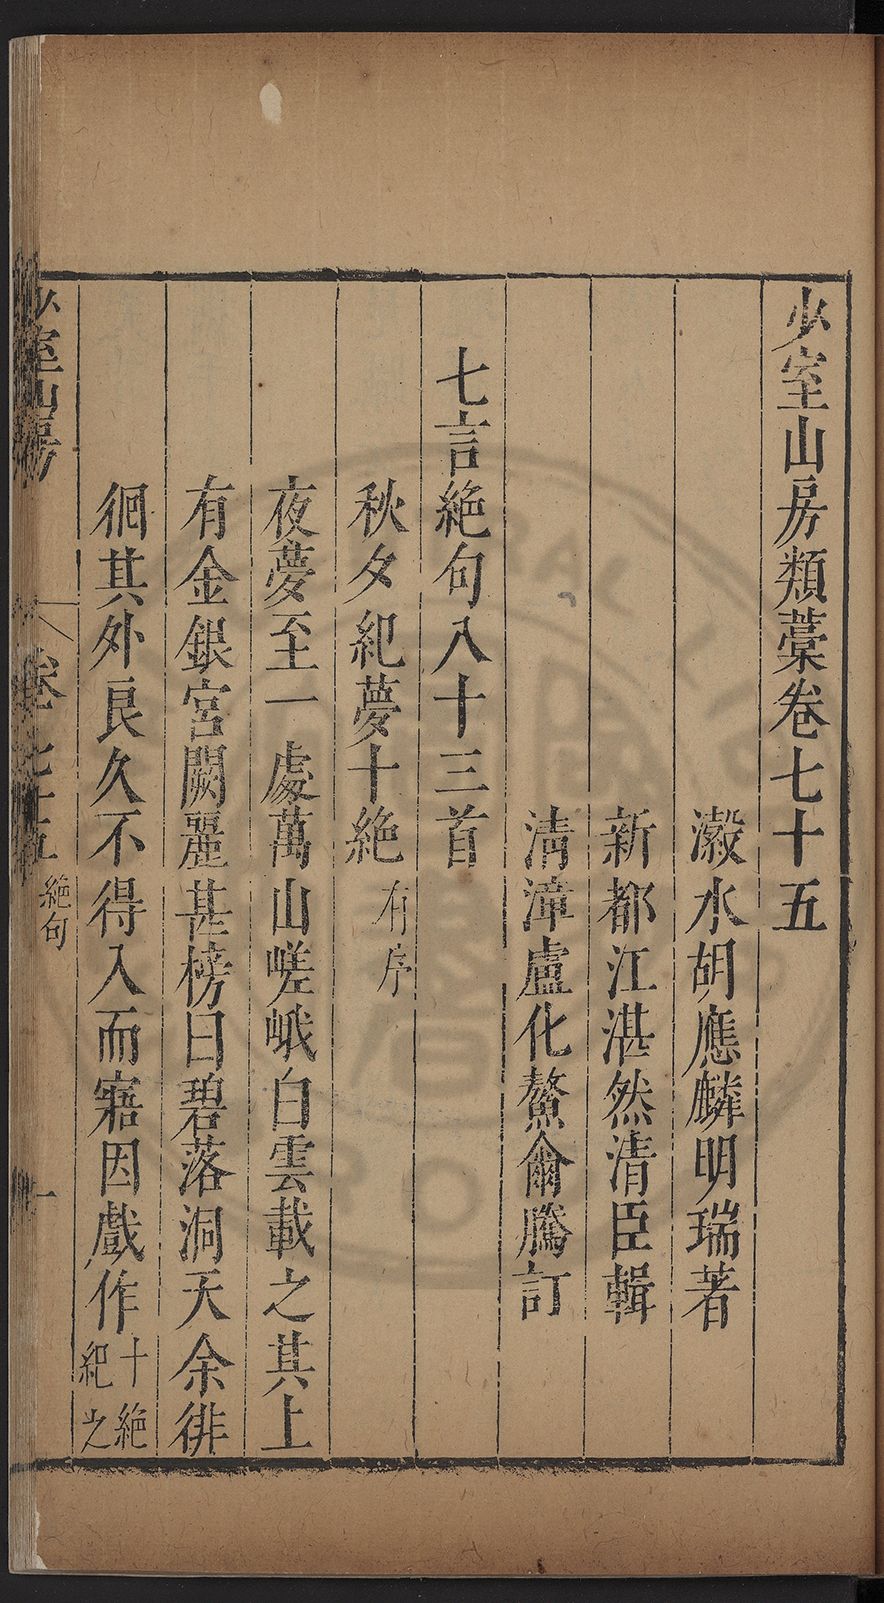 少室山房類藁卷七十五
瀫水胡應麟明瑞著
新都江湛然清臣輯
清漳盧化鰲龠騰訂
七言絕句八十三首
秋夕紀夢十絕有序
夜夢至一處萬山嵯峨白雲載之其上
有金銀宮闕麗甚榜曰碧落洞天余徘
徊其外良久不得入而寤因戲作十絕紀之
少室山房 卷七十五 絕句 一